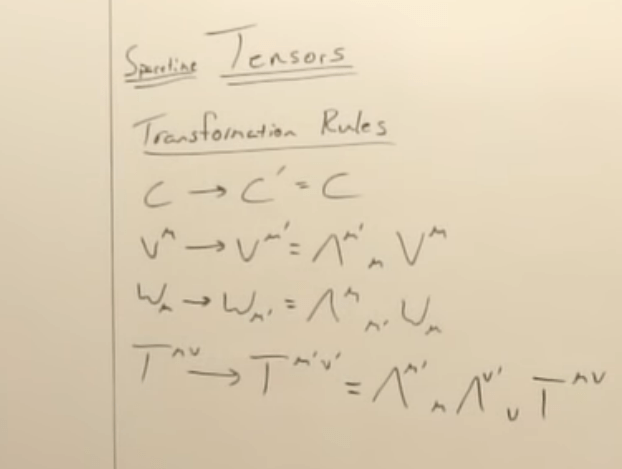 Spacetime Tensors
Transformation Rules
C → C' = C
V^μ → V^μ' = Λ^μ'_μ V^μ
W_μ → W_μ' = Λ^μ_μ' W_μ
T^μν → T^μ'ν' = Λ^μ'_μ Λ^ν'_ν T^μν